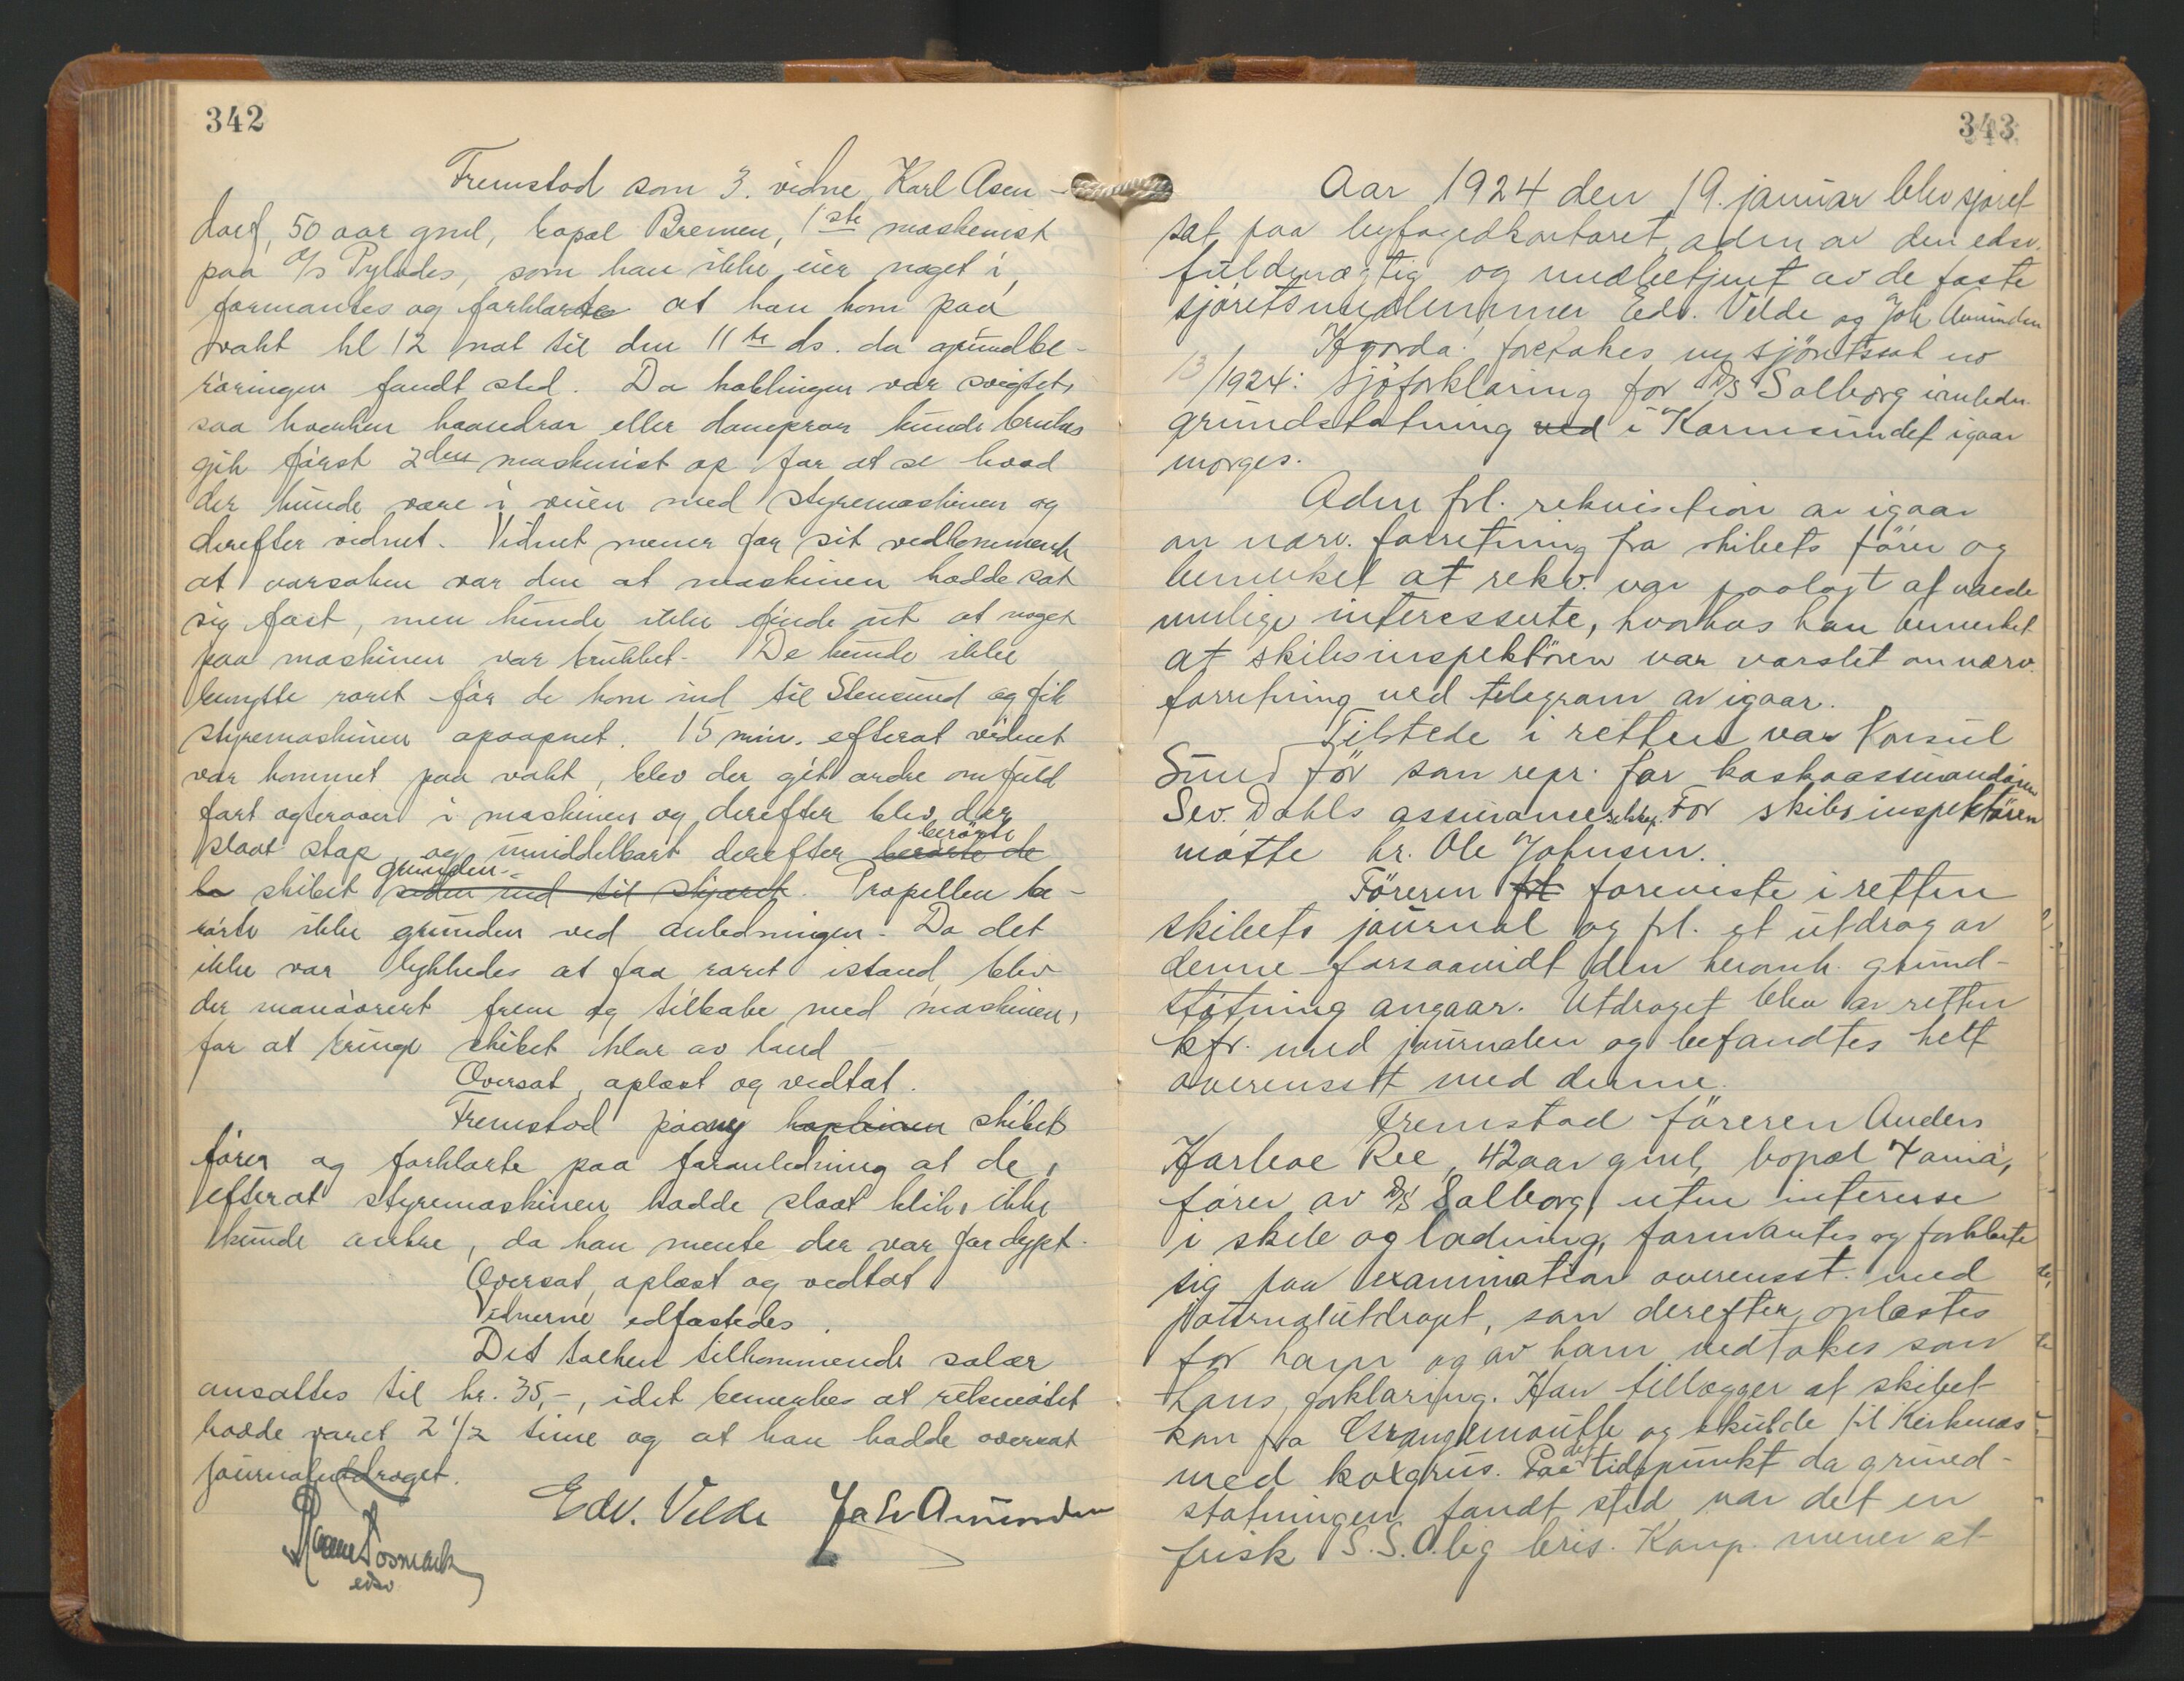 342
Fremstod som 3. vidne Karl Asen-
dorf, 50 aar gml, bopæl Bremen, 1ste maskinist
paa D/S Pylades, som han ikke eier noget i,
formantes og forklarte at han kom paa
vakt kl 12 nat til den 11te ds. da grundbe-
røringen fandt sted. Da koblingen var svigtet,
saa hverken haandror eller dampror kunde brukes
gik først 2den maskinist op for at se hvad
der kunde være i veien med styremaskinen og
derefter vidnet. Vidnet mener for sit vedkommende
at aarsaken var den at maskinen hadde sat
sig fast, men kunde ikke finde ut at noget
paa maskinen var brukket. De kunde ikke
benytte roret før de kom ind til Stensund og fik
styremaskinen opaapnet. 15 min. efterat vidnet
var kommet paa vakt, blev der git ordre om fuld
fart agterover i maskinen og derefter blev der
slaat stop og umiddelbart derefter berørte de berørte
skibet siden ind til skjæret grunden. Propellen be-
rørte ikke grunden ved anledningen. Da det
ikke var lykkedes at faa roret istand, blev
der manøvrert frem og tilbake med maskinen,
for at bringe skibet klar av land
Oversat, oplæst og vedtat.
Fremstod paany kapteinen skibets
fører og forklarte paa foranledning at de,
efterat styremaskinen hadde slaat klik, ikke
kunde ankre, da han mente der var for dypt.
Oversat, oplæst og vedtat
Vidnerne edfæstedes.
Det tolken tilkommende salær
ansattes til kr. 35,-, idet bemerkes at retsmøtet
hadde varet 2 1/2 time og at han hadde oversat
journalutdraget.
Edv. Velde Joh Amundsen
edsv
343
Aar 1924 den 19. januar blev sjøret
sat paa byfogedkontoret, adm av den edsv.
fuldmægtig og medbetjent av de faste
sjøretsmedlemmer Edv. Velde og Joh Amundsen
Hvorda: foretokes ny sjøretssak no
13/1924: Sjøforklaring for D/S Solborg i anledn.
grundstøtning ved i Karmsundet igaar
morges.
Adm frl. rekvisition av igaar
om nærv. forretning fra skibets fører og
bemerket at rekv. var paalagt at varsle
mulige interesserte, hvorhos han bemerket
at skibsinspektøren var varslet om nærv.
forretning ved telegram av igaar.
Tilstede i retten var Konsul
Sund for som repr. for kaskoassurandøren
Sev. Dahls assuranceselskap. For skibsinspektøren
møtte hr. Ole Johnsen.
Føreren frl foreviste i retten
skibets journal og frl. et utdrag av
denne forsaavidt den heromh. grund-
støtning angaar. Utdraget blev av retten
kfr. med journalen og befandtes helt
overensst med denne.
Fremstod føreren Anders
Harboe Ree, 42 aar gml, bopæl
fører av D/S Solborg uten interesse
i skib og ladning, formantes og forklarte
sig paa examination overensst. med
journalutdraget, som derefter oplæstes
for ham og av ham vedtokes som
hans forklaring. Han tillægger at skibet
kom fra Grangemouth og skulde til Kirkenes
med koxgrus. Paa det tidspunkt da grund-
støtningen fandt sted var det en
frisk S.S.O.lig bris. Komp. mener at